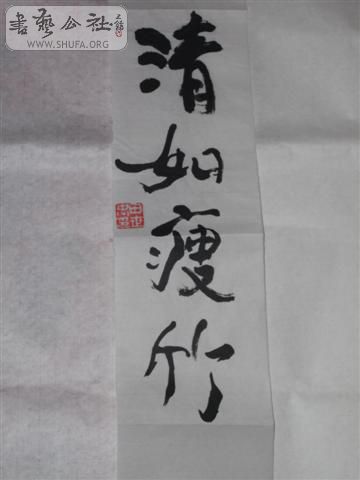 書藝公社
WWW.SHUFA.ORG
清如瘦竹